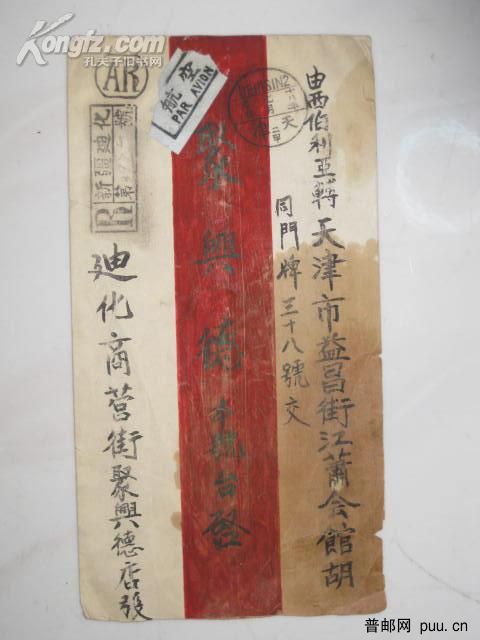 Kongfz.com
孔夫子旧书网
AR
航空
PAR AVION
R
新疆迪化
第
號
由西伯利亞轉天津市益昌街江蕭會館胡
同門牌三十八號交
聚興德本號台啓
迪化商營街聚興德店發
普邮网 puu.cn